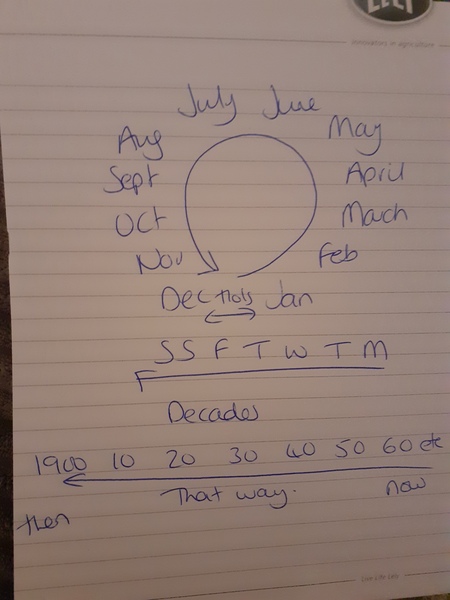 innovators in agriculture
July June
Aug May
Sept April
Oct March
Nov Feb
Dec Hols Jan
S S F T W T M
Decades
1900 10 20 30 40 50 60 etc
That way. now
then